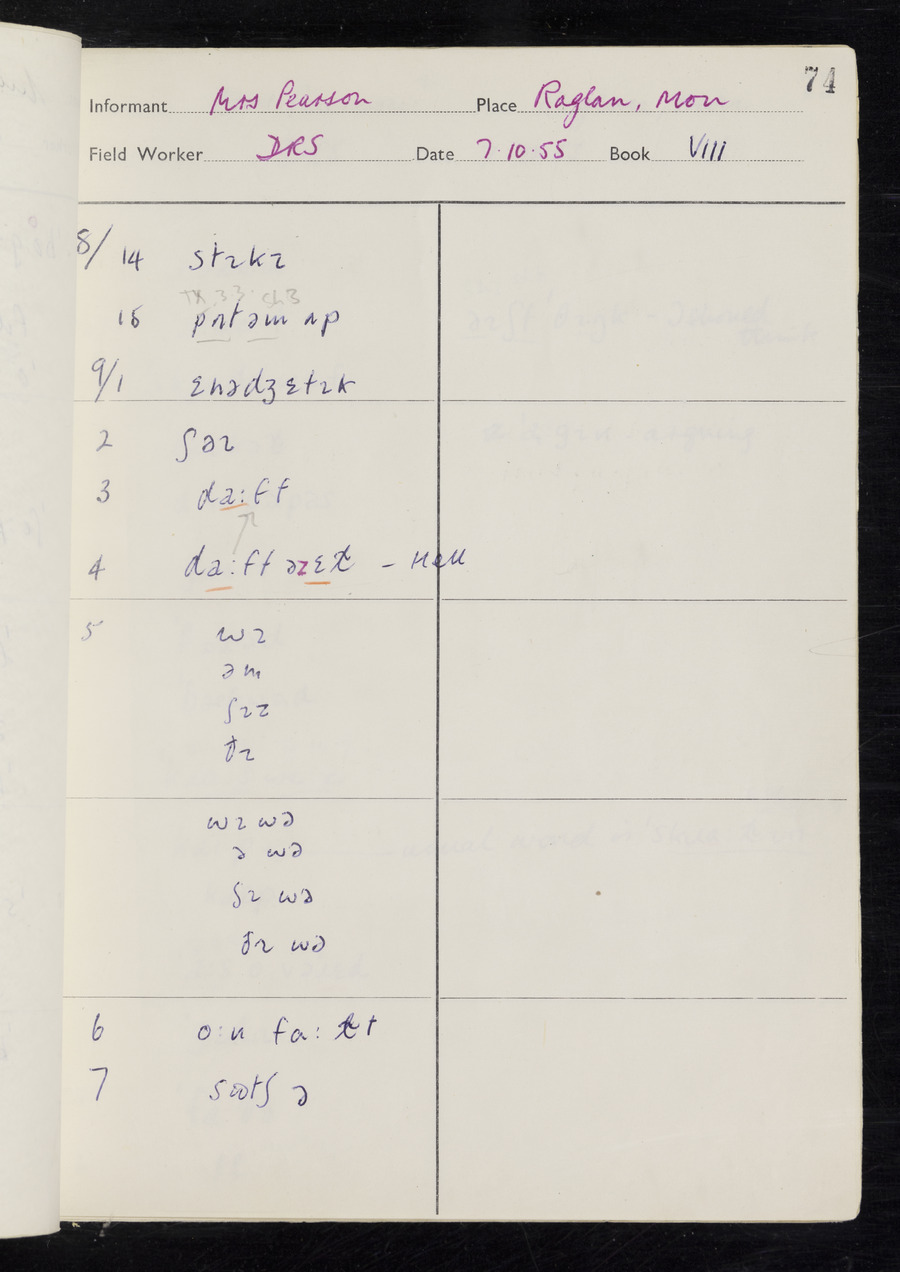 74
Informant Mrs Pearson Place Raglan, Mon
Field Worker DRS Date 7.10.55 Book VIII
8/ 14 stɪkɪ
15 pʌt əm ʌp
9/1 ɛnədʒɛtɪk
2 ʃəɪ
3
4 – Hell
5 wɪ
əm
ʃɪz
ðɪ
wɪ wə
ə wə
ʃɪ wə
ðɪ wə
6
7 swtʃ ə